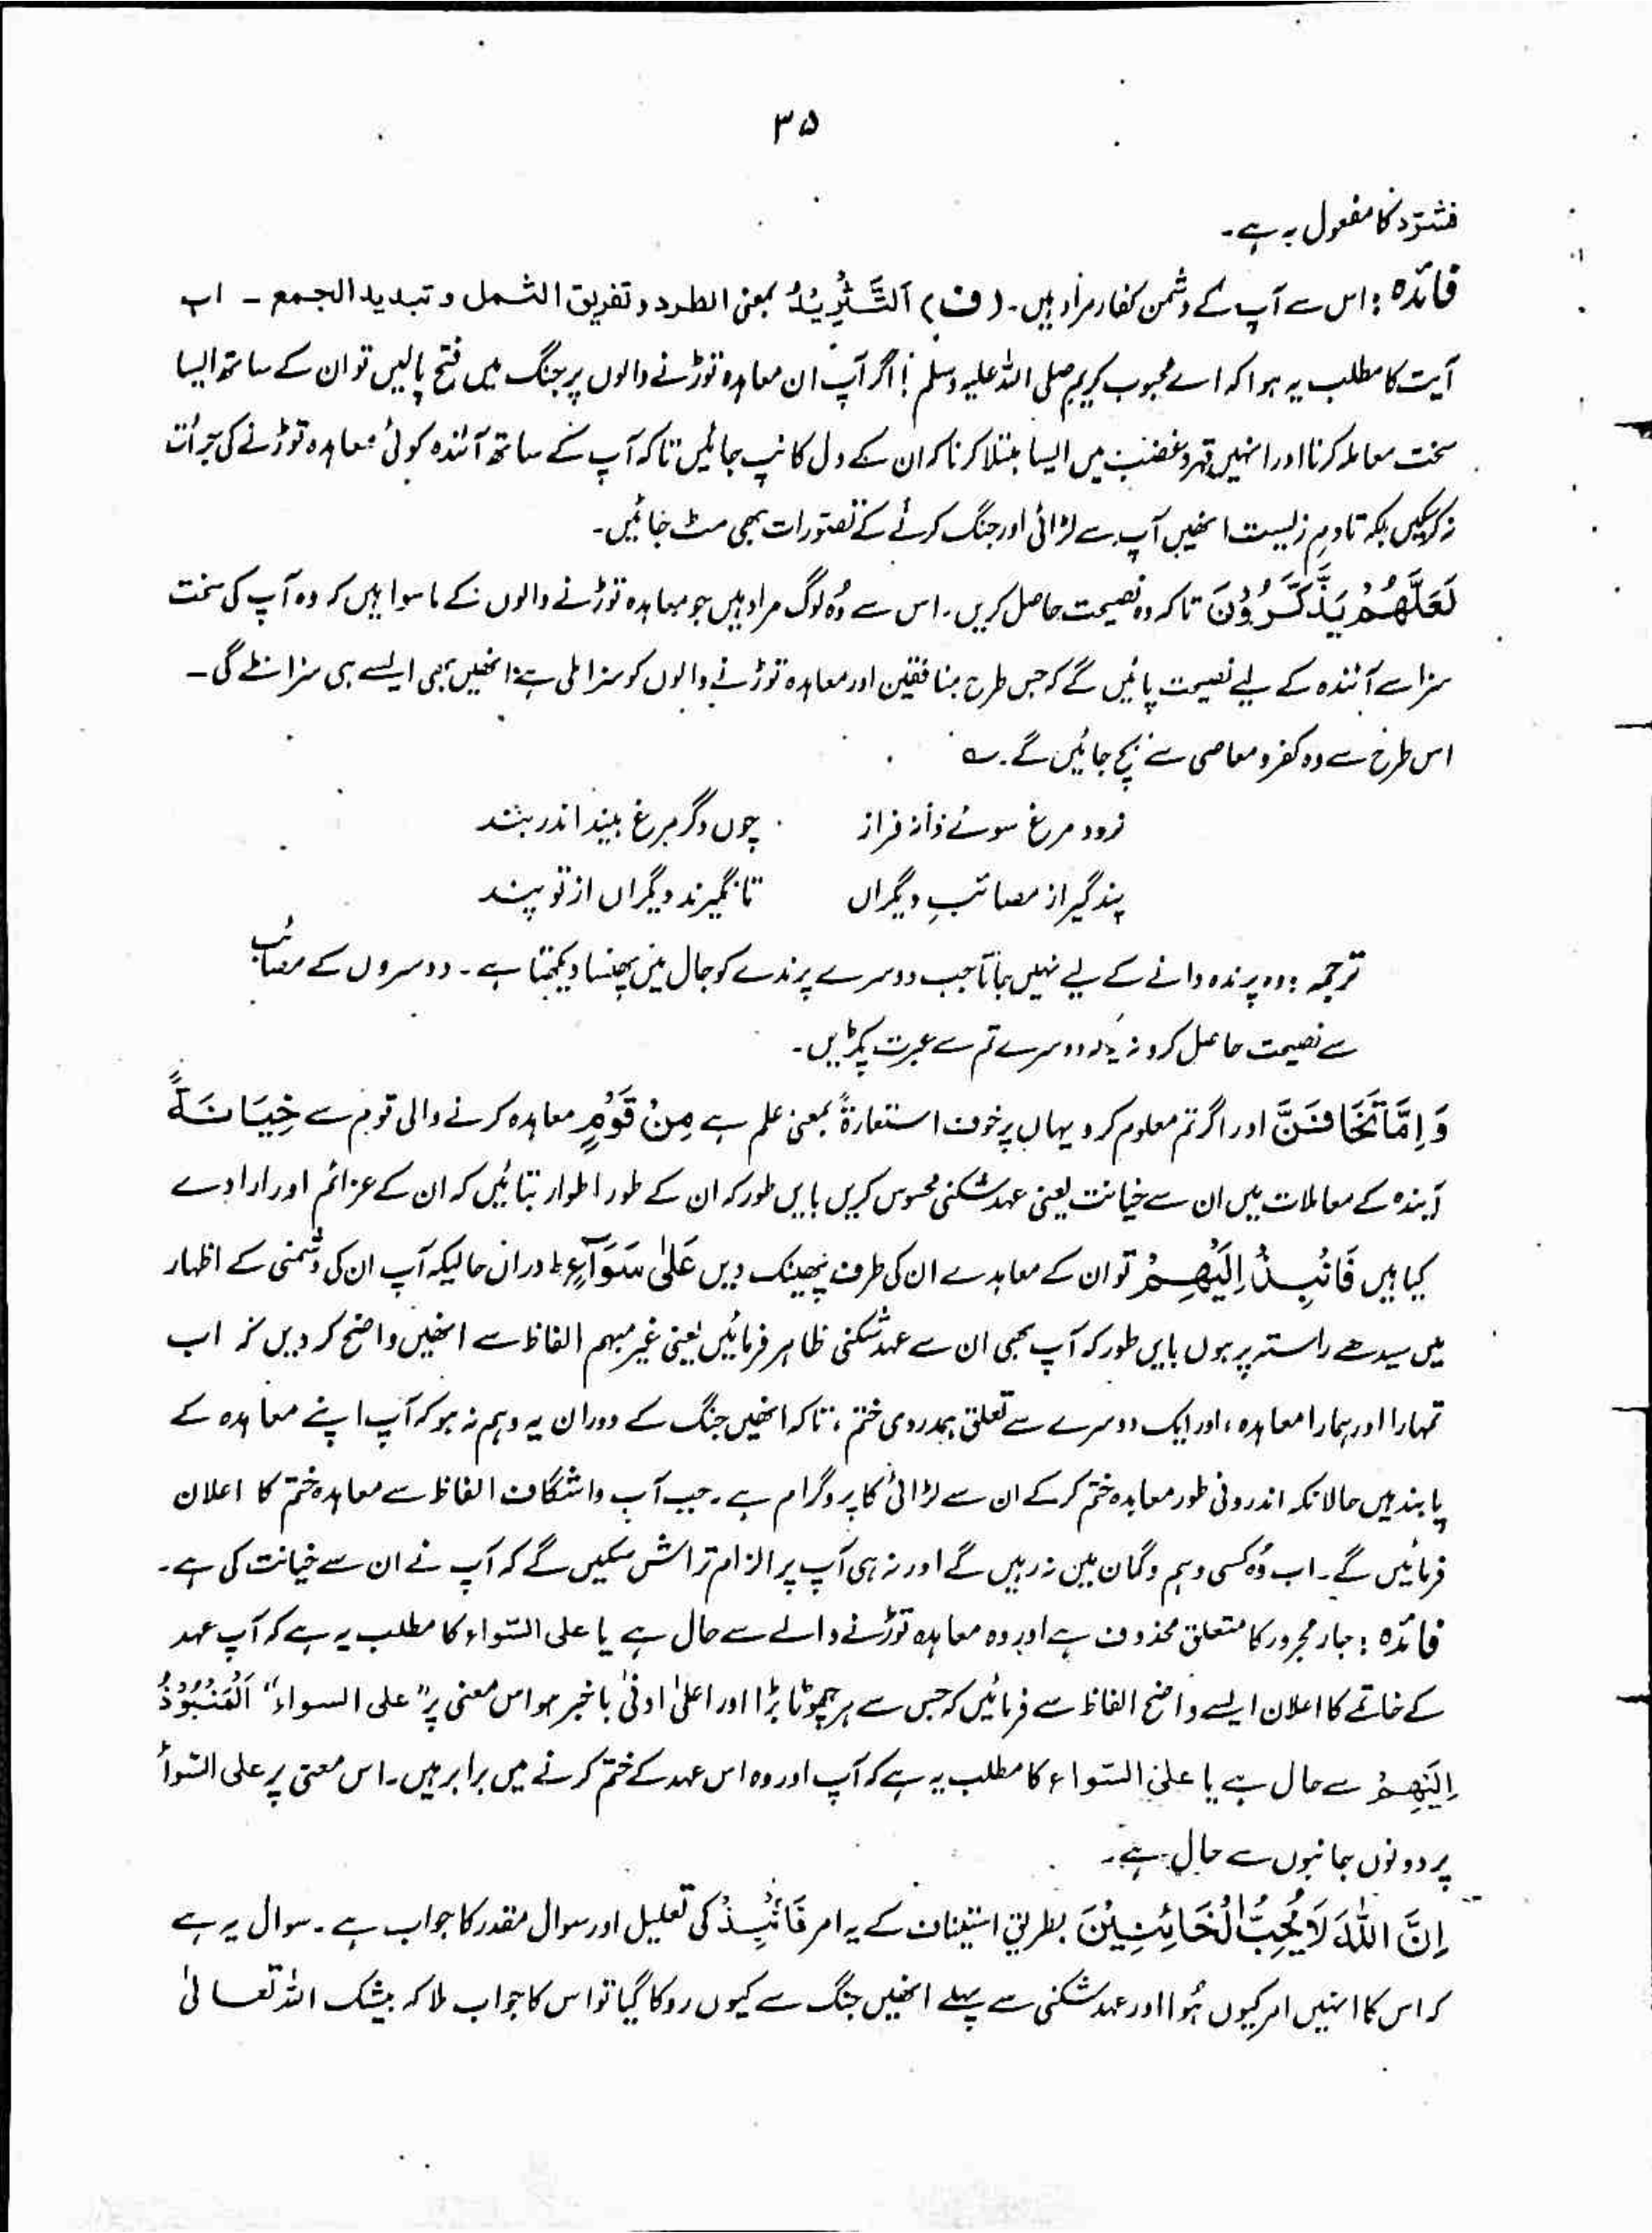 ۳۵
فشرّد کا مفعول بہ ہے۔
فائدہ : اس سے آپ کے دشمن کفار مراد ہیں۔ (ف) اَلتَّشْرِیْدُ بمعنی الطرد و تفریق الشمل و تبدید الجمع ۔ اب
آیت کا مطلب یہ ہوا کہ اے محبوب کریم صلی اللہ علیہ وسلم ! اگر آپ ان معاہدہ توڑنے والوں پر جنگ میں فتح پا لیں تو ان کے ساتھ ایسا
سخت معاملہ کرنا اور انہیں قہر و غضب میں ایسا مبتلا کرنا کہ ان کے دل کانپ جائیں تاکہ آپ کے ساتھ آئندہ کوئی معاہدہ توڑنے کی جرأت
نہ کر سکیں بلکہ تادمِ زلیست انھیں آپ سے لڑائی اور جنگ کرنے کے تصوّرات بھی مٹ جائیں۔
لَعَلَّهُمْ یَذَّکَّرُوْنَ تاکہ وہ نصیحت حاصل کریں۔ اس سے وُہ لوگ مراد ہیں جو معاہدہ توڑنے والوں کے ماسوا ہیں کہ وہ آپ کی سخت
سزا سے آئندہ کے لیے نصیحت پائیں گے کہ جس طرح منافقین اور معاہدہ توڑنے والوں کو سزا ملی ہے انھیں بھی ایسے ہی سزا ملے گی۔
اس طرح سے وہ کفر و معاصی سے بچ جائیں گے۔ ؎
نرود مرغ سوئے دانہ فراز چوں دگر مرغ بیند اندر بند
پند گیر از مصائبِ دیگراں تا نگیرند دیگراں از تو پند
ترجمہ : وہ پرندہ دانے کے لیے نہیں جاتا جب دوسرے پرندے کو جال میں پھنسا دیکھتا ہے۔ دوسروں کے مصائب
سے نصیحت حاصل کرو نہ یہ کہ دوسرے تم سے عبرت پکڑیں۔
وَ اِمَّا تَخَافَنَّ اور اگر تم معلوم کرو یہاں پر خوف استعارۃً بمعنی علم ہے مِنْ قَوْمٍ معاہدہ کرنے والی قوم سے خِیَانَةً
آیندہ کے معاملات میں ان سے خیانت یعنی عہد شکنی محسوس کریں بایں طور کہ ان کے طور اطوار بتائیں کہ ان کے عزائم اور ارادے
کیا ہیں فَانْۢبِذْ اِلَیْهِمْ تو ان کے معاہدے ان کی طرف پھینک دیں عَلٰی سَوَآءٍ ؕ دراں حالیکہ آپ ان کی دشمنی کے اظہار
میں سیدھے راستہ پر ہوں بایں طور کہ آپ بھی ان سے عہد شکنی ظاہر فرمائیں یعنی غیر مبہم الفاظ سے انھیں واضح کر دیں کہ اب
تمہارا اور ہمارا معاہدہ ، اور ایک دوسرے سے تعلق ہمدردی ختم ، تاکہ انھیں جنگ کے دوران یہ وہم نہ ہو کہ آپ اپنے معاہدہ کے
پابند ہیں حالانکہ اندرونی طور معاہدہ ختم کر کے ان سے لڑائی کا پروگرام ہے۔ جب آپ واشگاف الفاظ سے معاہدہ ختم کا اعلان
فرمائیں گے۔ اب وُہ کسی وہم و گمان میں نہ رہیں گے اور نہ ہی آپ پر الزام تراش سکیں گے کہ آپ نے ان سے خیانت کی ہے۔
فائدہ : جار مجرور کا متعلق محذوف ہے اور وہ معاہدہ توڑنے والے سے حال ہے یا علی السّواء کا مطلب یہ ہے کہ آپ عہد
کے خاتمے کا اعلان ایسے واضح الفاظ سے فرمائیں کہ جس سے ہر چھوٹا بڑا اور اعلیٰ ادنیٰ باخبر ہو اس معنی پر "علی السواء" اَلْمَنْبُوْذُ
اِلَیْهِمْ سے حال ہے یا علی السّواء کا مطلب یہ ہے کہ آپ اور وہ اس عہد کے ختم کرنے میں برابر ہیں۔ اس معنی پر علی السّوأ
پر دونوں جانبوں سے حال ہے۔
اِنَّ اللهَ لَا یُحِبُّ الْخَائِنِیْنَ بطریق استیناف کے یہ امر فَانْۢبِذْ کی تعلیل اور سوال مقدر کا جواب ہے۔ سوال یہ ہے
کہ اس کا انہیں امر کیوں ہُوا اور عہد شکنی سے پہلے انھیں جنگ سے کیوں روکا گیا تو اس کا جواب ملا کہ بیشک اللہ تعالیٰ